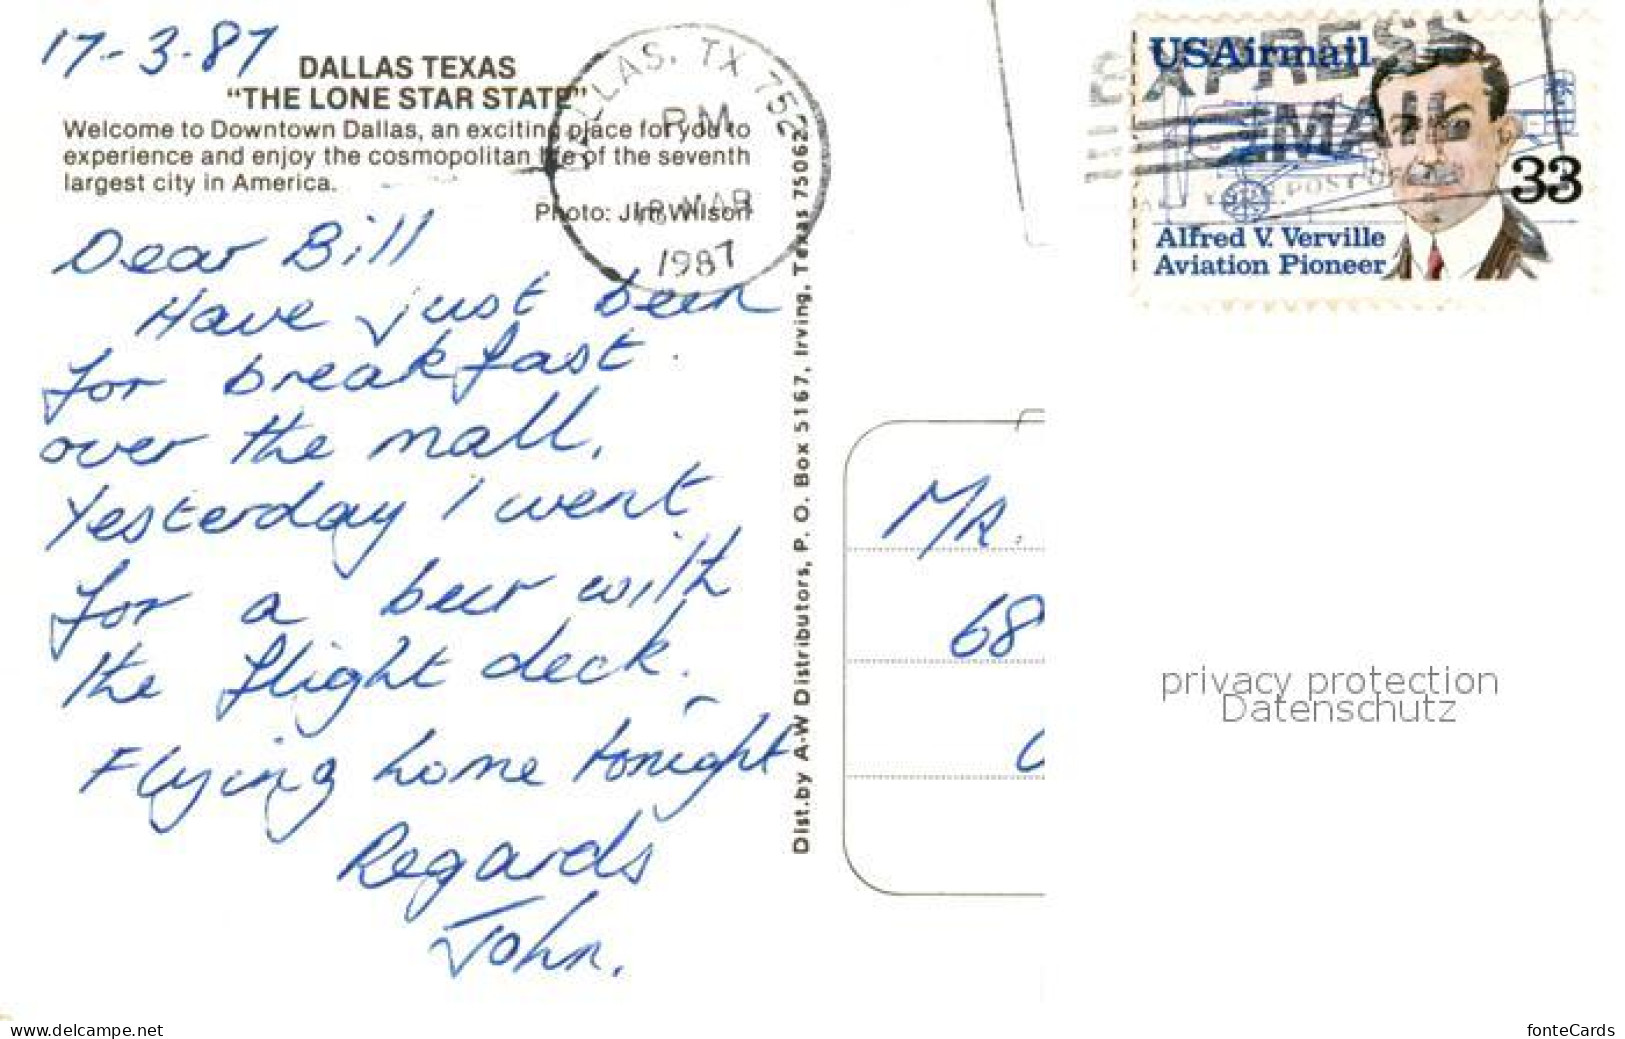 17-3-87
DALLAS TEXAS
"THE LONE STAR STATE"
Welcome to Downtown Dallas, an exciting place for you to
experience and enjoy the cosmopolitan life of the seventh
largest city in America.
Photo: Jim Wilson
Dear Bill
Have just been
for breakfast
over the mall.
Yesterday I went
for a beer with
the flight deck.
Flying home tonight
Regards
John.
DALLAS, TX 752
PM
18 MAR
1987
Dist. by A-W Distributors, P. O. Box 5167, Irving, Texas 75062
EXPRESS
MAIL
USAirmail
33
Alfred V. Verville
Aviation Pioneer
MR.
68
privacy protection
Datenschutz
www.delcampe.net
fonteCards